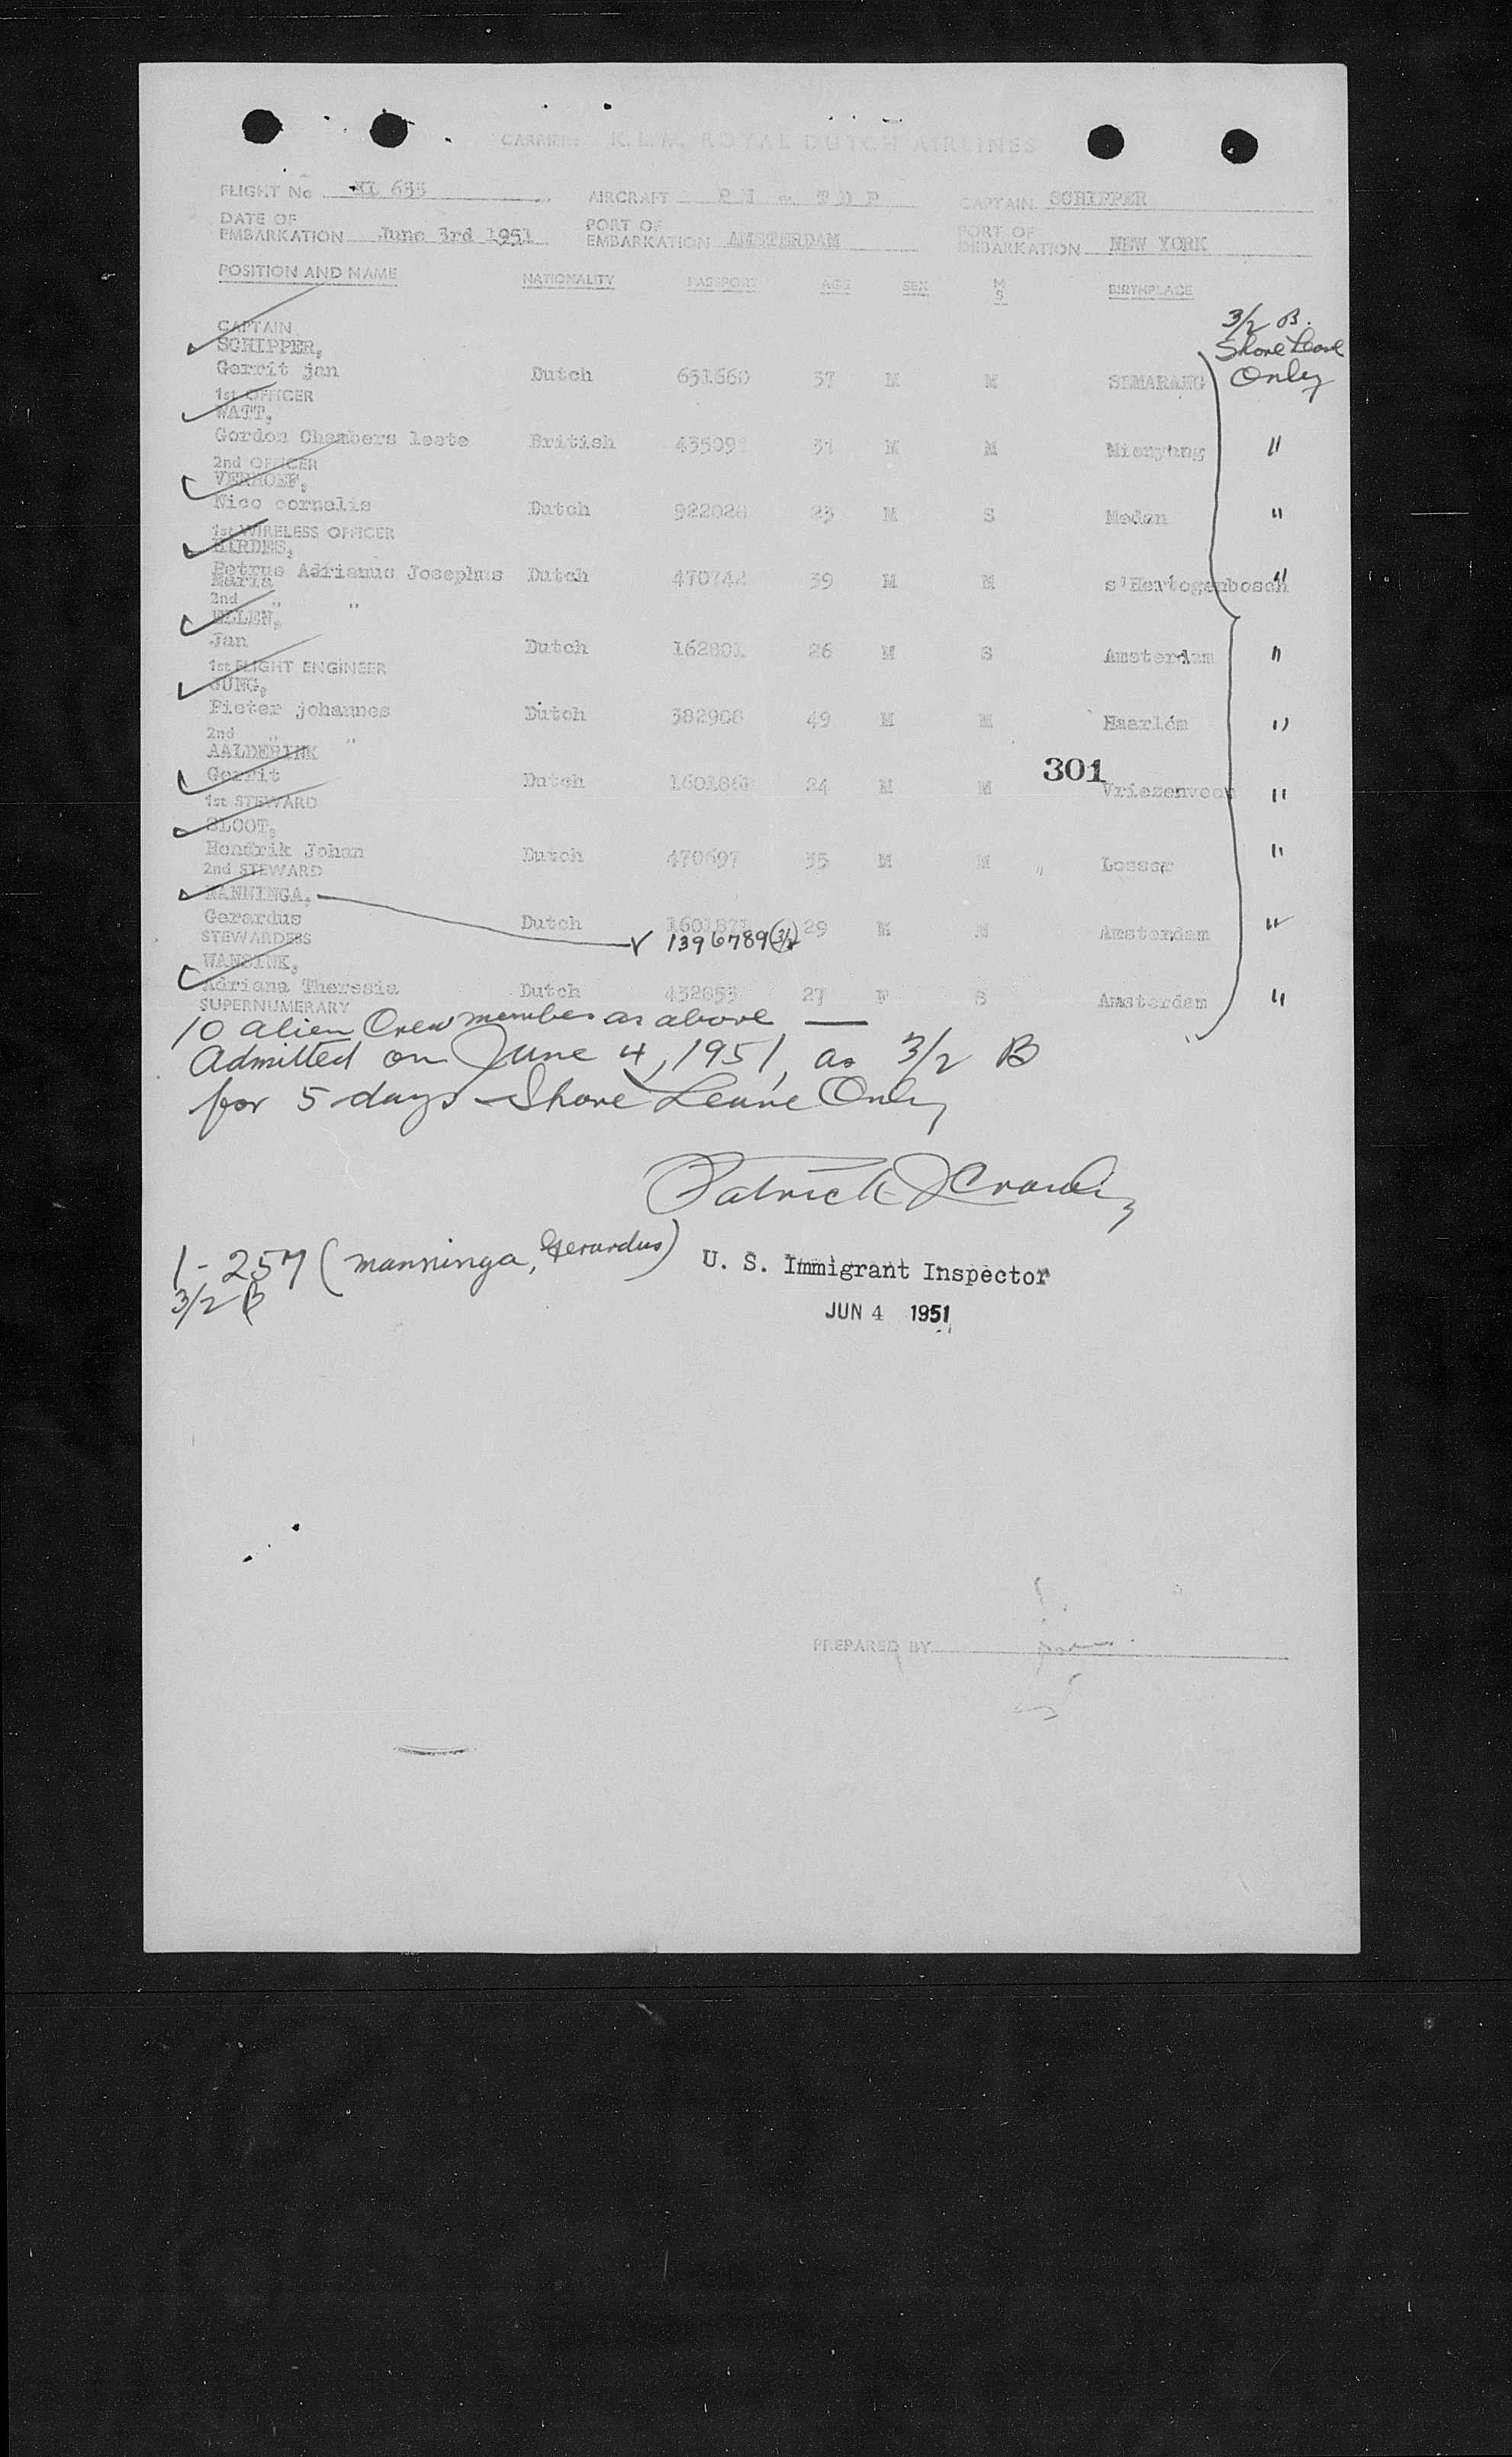 CARRIER: K.L.M. ROYAL DUTCH AIRLINES
FLIGHT No KL 633 AIRCRAFT PH - TDP CAPTAIN SCHIPPER
DATE OF EMBARKATION June 3rd 1951 PORT OF EMBARKATION AMSTERDAM PORT OF DEBARKATION NEW YORK
POSITION AND NAME NATIONALITY PASSPORT AGE SEX M S BIRTHPLACE
3/2 B.
Shore Leave
Only
CAPTAIN
SCHIPPER,
Gerrit jan Dutch 651660 37 M M SEMARANG
1st OFFICER
WATT,
Gordon Chambers leete British 43509 31 M M "
2nd OFFICER
VERHOEF,
Nico cornelis Dutch 922028 23 M S Medan "
1st WIRELESS OFFICER
Petrus Adrianus Josephus Dutch 470742 39 M M s'Hertogenbosch "
Maria
2nd " "
ELLEN,
Jan Dutch 162801 26 M S Amsterdam "
1st FLIGHT ENGINEER
JUNG,
Pieter johannes Dutch 382908 49 M M Haarlem "
2nd " "
AALDERINK
Gerrit Dutch 160186 24 M M 301 Vriezenveen "
1st STEWARD
SLOOT,
Hendrik Johan Dutch 470697 35 M M Losser "
2nd STEWARD
NANNINGA,
Gerardus Dutch 160187 29 M M Amsterdam "
1396789 (3/2)
STEWARDESS
WANSINK,
Adriana Theresia Dutch 432853 27 F S Amsterdam "
SUPERNUMERARY
10 alien Crew members as above —
Admitted on June 4, 1951, as 3/2 B
for 5 days - Shore Leave Only
Patrick J Crowley
1-257 (Manninga, Gerardus)
3/2 B
U. S. Immigrant Inspector
JUN 4 1951
PREPARED BY